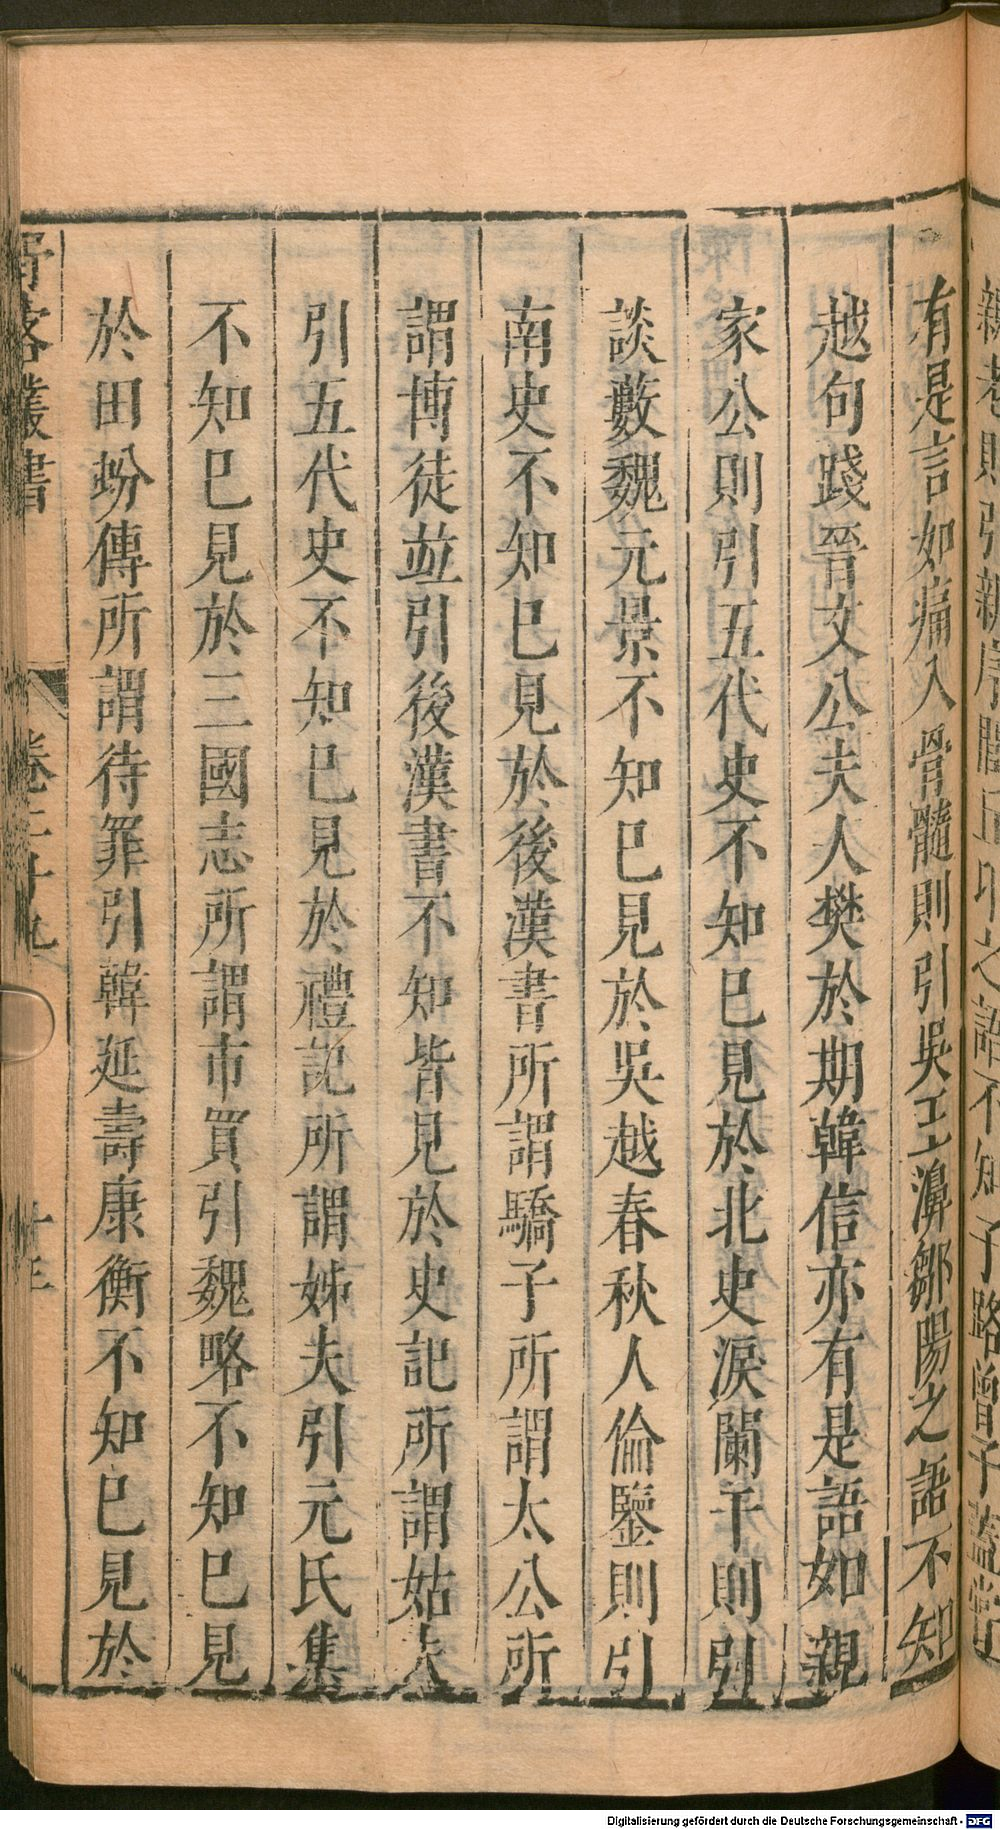 有是言如痛入骨髓則引吳王濞鄒陽之語不知
越句踐晉文公夫人樊於期韓信亦有是語如親
家公則引五代史不知巳見於北史淚闌干則引
談藪魏元景不知巳見於吳越春秋人倫鑒則引
南史不知巳見於後漢書所謂驕子所謂太公所
謂博徒並引後漢書不知皆見於史記所謂姑夫
引五代史不知巳見於禮記所謂姊夫引元氏集
不知巳見於三國志所謂市買引魏略不知巳見
於田蚡傳所謂待罪引韓延壽康衡不知巳見於
客叢書 卷二十九 十三
Digitalisierung gefördert durch die Deutsche Forschungsgemeinschaft - DFG